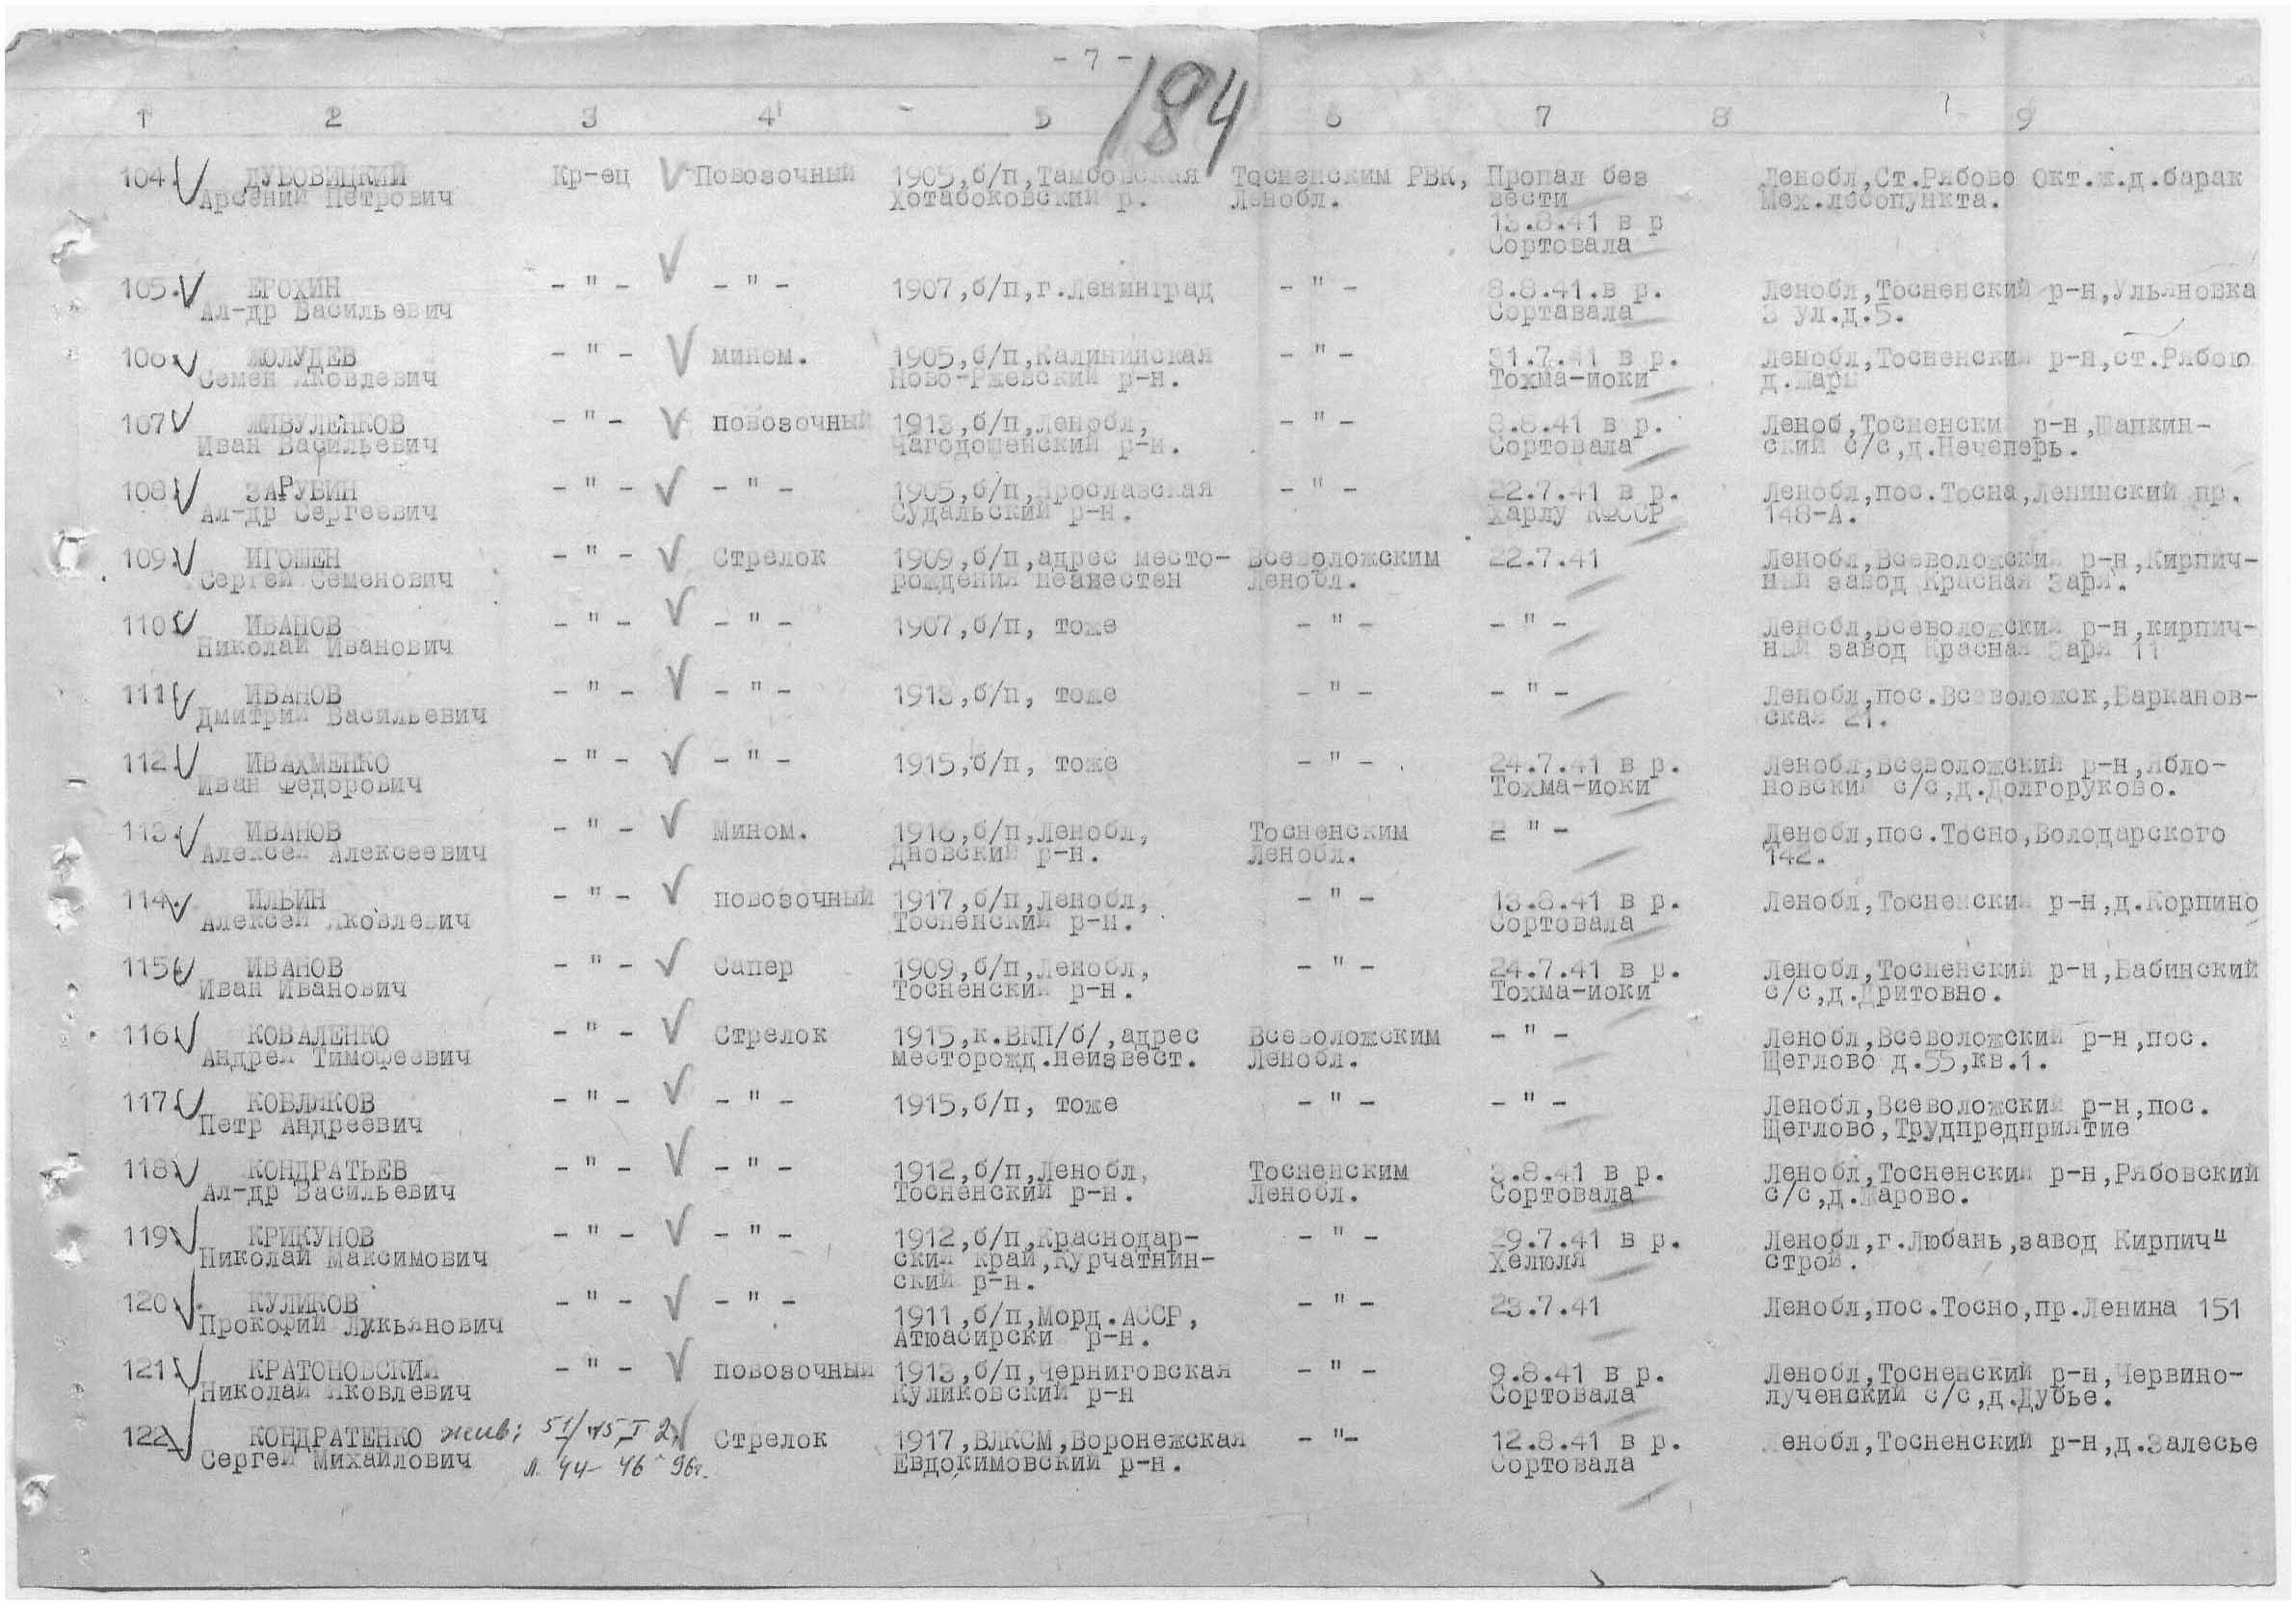 - 7 -
184
1 2 3 4 5 6 7 8 9
104. ДУБОВИЦКИЙ Кр-ец Повозочный 1905,б/п,Тамбовская Тосненским РВК, Пропал без Ленобл,Ст.Рябово Окт.ж.д.барак
Арсений Петрович Хотабоковский р. Ленобл. вести Мех.лесопункта.
13.8.41 в р
Сортовала
105. ЕРОХИН - " - - " - 1907,б/п,г.Ленинград - " - 8.8.41.в р. Ленобл,Тосненский р-н,Ульяновка
Ал-др Васильевич Сортавала 3 ул.д.5.
106 ЖОЛУДЕВ - " - мином. 1905,б/п,Калининская - " - 31.7.41 в р. Ленобл,Тосненский р-н,ст.Рябою
Семен Яковлевич Ново-Ржевский р-н. Тохма-иоки д.Жары
107 ЖИВУЛЕНКОВ - " - повозочный 1913,б/п,Ленобл, - " - 8.8.41 в р. Леноб,Тосненский р-н,Шапкин-
Иван Васильевич Чагодощенский р-н. Сортовала ский с/с,д.Нечеперь.
108. ЗАРУБИН - " - - " - 1905,б/п,Ярославская - " - 22.7.41 в р. Ленобл,пос.Тосна,Ленинский пр.
Ал-др Сергеевич Судальский р-н. Харлу КФССР 148-А.
109. ИГОШЕН - " - Стрелок 1909,б/п,адрес место- Всеволожским 22.7.41 Ленобл,Всеволожский р-н,Кирпич-
Сергей Семенович рождения неизвестен Ленобл. ный завод Красная Заря.
110 ИВАНОВ - " - - " - 1907,б/п, тоже - " - - " - Ленобл,Всеволожский р-н,кирпич-
Николай Иванович ный завод Красная Заря 11
111 ИВАНОВ - " - - " - 1913,б/п, тоже - " - - " - Ленобл,пос.Всеволожск,Варканов-
Дмитрий Васильевич ская 21.
112. ИВАХМЕНКО - " - - " - 1915,б/п, тоже - " - 24.7.41 в р. Ленобл,Всеволожский р-н,Ябло-
Иван Федорович Тохма-иоки новский с/с,д.Долгоруково.
113. ИВАНОВ - " - Мином. 1916,б/п,Ленобл, Тосненским " - Ленобл,пос.Тосно,Володарского
Алексей Алексеевич Дновский р-н. Ленобл. 142.
114. ИЛЬИН - " - повозочный 1917,б/п,Ленобл, - " - 13.8.41 в р. Ленобл,Тосненский р-н,д.Корпино
Алексей Яковлевич Тосненский р-н. Сортовала
115 ИВАНОВ - " - Сапер 1909,б/п,Ленобл, - " - 24.7.41 в р. Ленобл,Тосненский р-н,Бабинский
Иван Иванович Тосненский р-н. Тохма-иоки с/с,д.Дритовно.
116. КОВАЛЕНКО - " - Стрелок 1915,к.ВКП/б/,адрес Всеволожским - " - Ленобл,Всеволожский р-н,пос.
Андрей Тимофеевич месторожд.неизвест. Ленобл. Щеглово д.55,кв.1.
117. КОВЛЯКОВ - " - - " - 1915,б/п, тоже - " - - " - Ленобл,Всеволожский р-н,пос.
Петр Андреевич Щеглово,Трудпредприятие
118. КОНДРАТЬЕВ - " - - " - 1912,б/п,Ленобл, Тосненским 3.8.41 в р. Ленобл,Тосненский р-н,Рябовский
Ал-др Васильевич Тосненский р-н. Ленобл. Сортовала с/с,д.Жарово.
119. КРИКУНОВ - " - - " - 1912,б/п,Краснодар- - " - 29.7.41 в р. Ленобл,г.Любань,завод Кирпич"
Николай Максимович ский край,Курчатнин- Хелюля строй.
ский р-н.
120 КУЛИКОВ - " - - " - 1911,б/п,Морд.АССР, - " - 23.7.41 Ленобл,пос.Тосно,пр.Ленина 151
Прокофий Лукьянович Атюасирски р-н.
121. КРАТОНОВСКИЙ - " - повозочный 1913,б/п,Черниговская - " - 9.8.41 в р. Ленобл,Тосненский р-н,Червино-
Николай Яковлевич Куликовский р-н Сортовала лученский с/с,д.Дубье.
122 КОНДРАТЕНКО жив: Стрелок 1917,ВЛКСМ,Воронежская - "- 12.8.41 в р. енобл,Тосненский р-н,д.Залесье
Сергей Михайлович л. 44- 46 96г. Евдокимовский р-н. Сортовала